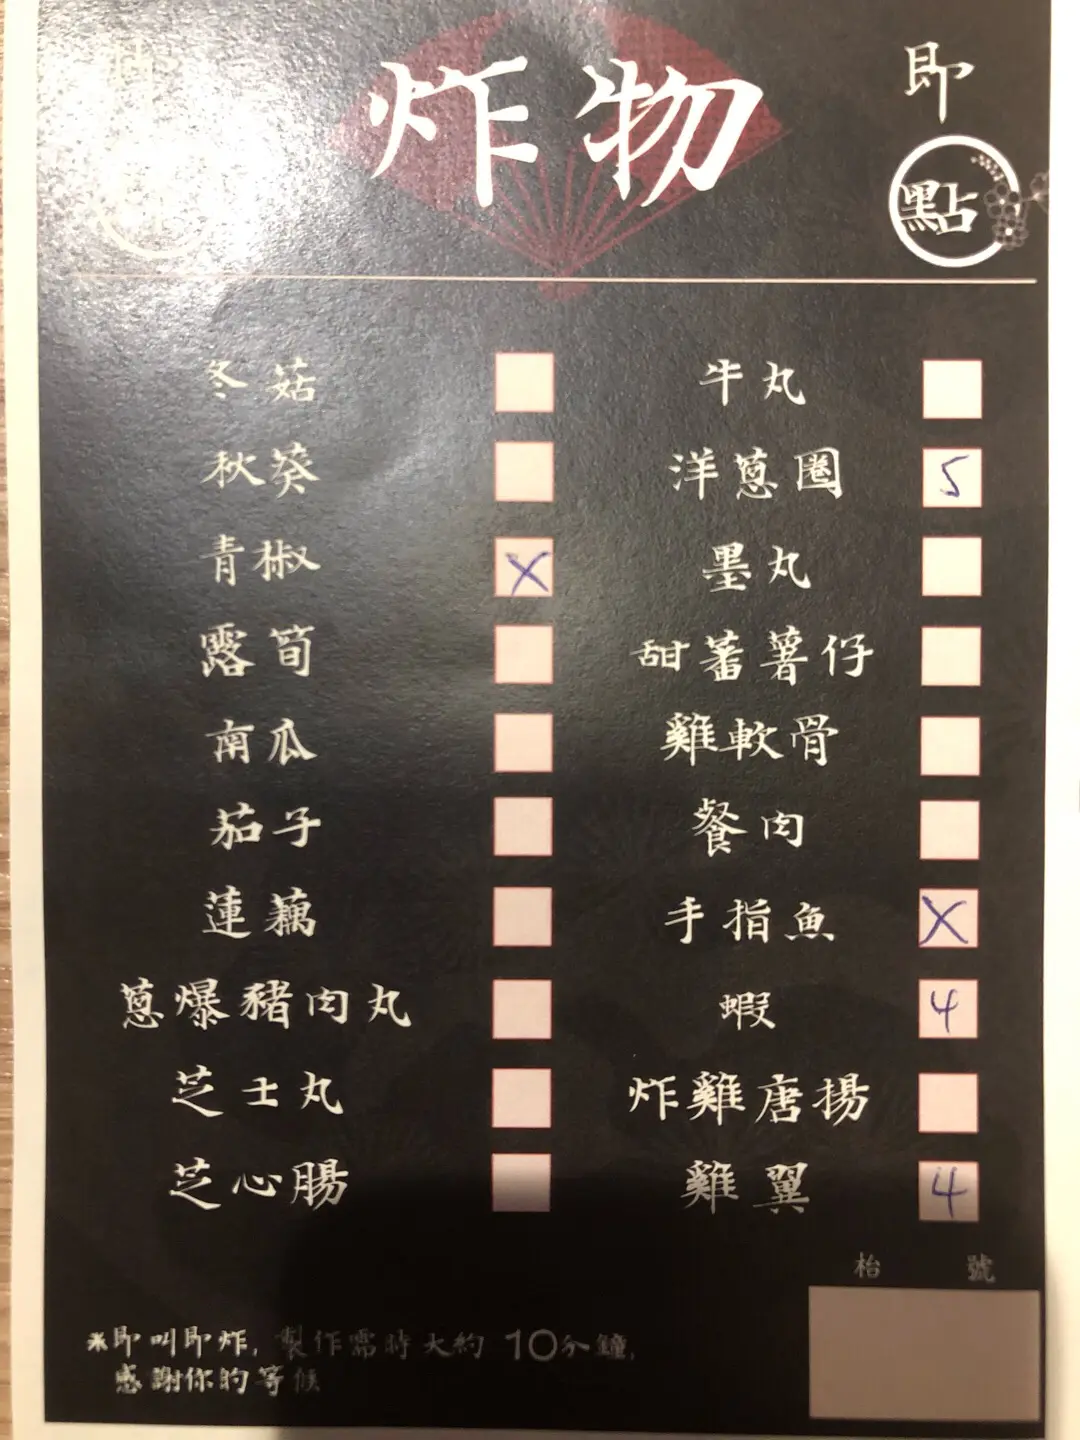 炸物
即
點
冬菇
秋葵
青椒 X
露筍
南瓜
茄子
蓮藕
蔥爆豬肉丸
芝士丸
芝心腸
牛丸
洋蔥圈 5
墨丸
甜蕃薯仔
雞軟骨
餐肉
手指魚 X
蝦 4
炸雞唐揚
雞翼 4
枱 號
*即叫即炸, 製作需時大約 10分鐘,
感謝你的等候